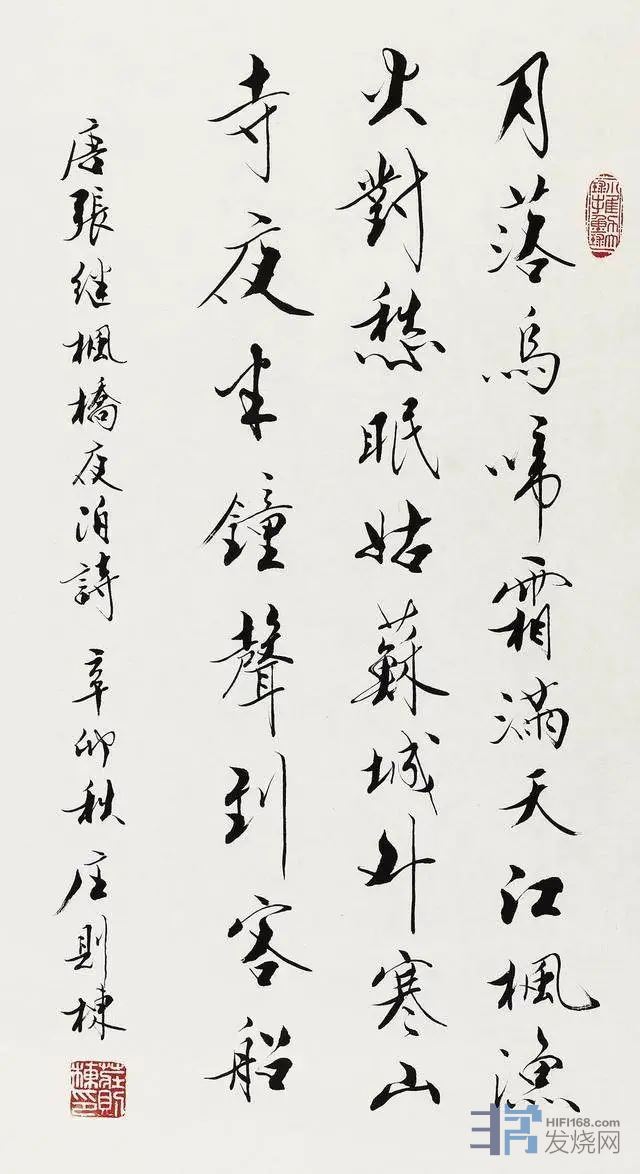 月落烏啼霜滿天江楓漁
火對愁眠姑蘇城外寒山
寺夜半鐘聲到客船
唐張继楓橋夜泊詩 辛卯秋 庄則棟
莊則棟印
HIFI168.com
发烧网